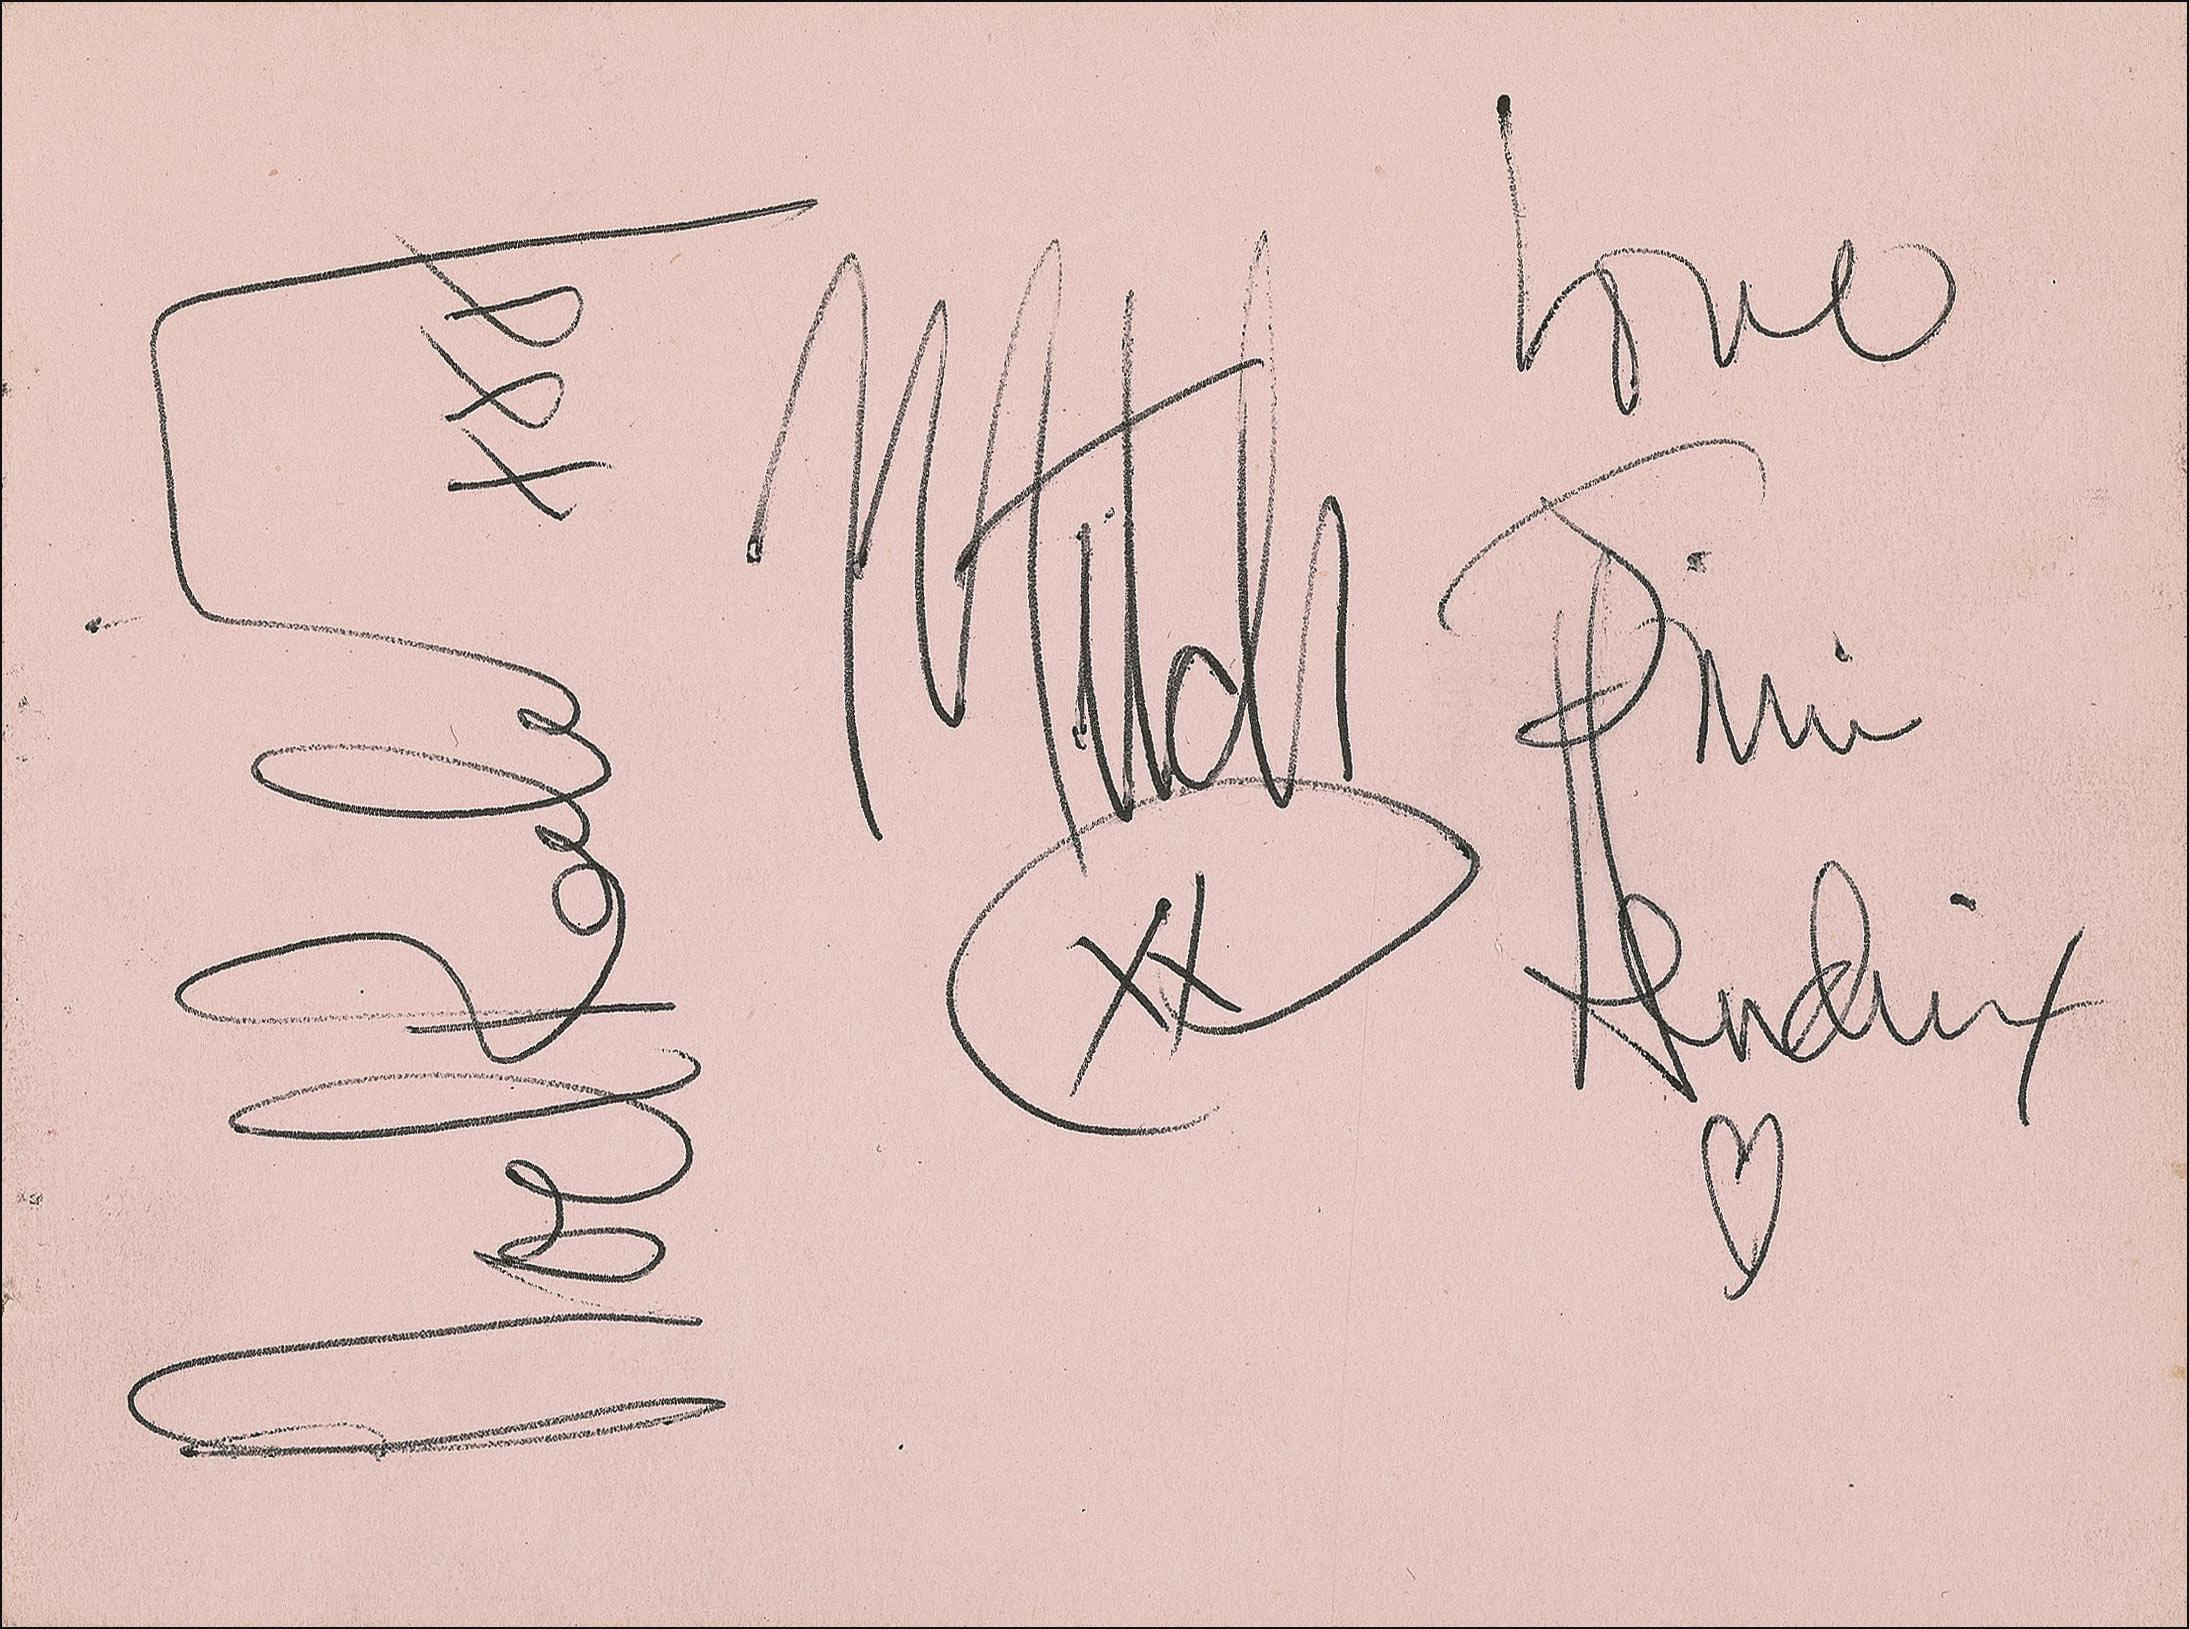 Love
Jimi
Hendrix
Mitch
XX
Noel Redding
xxx